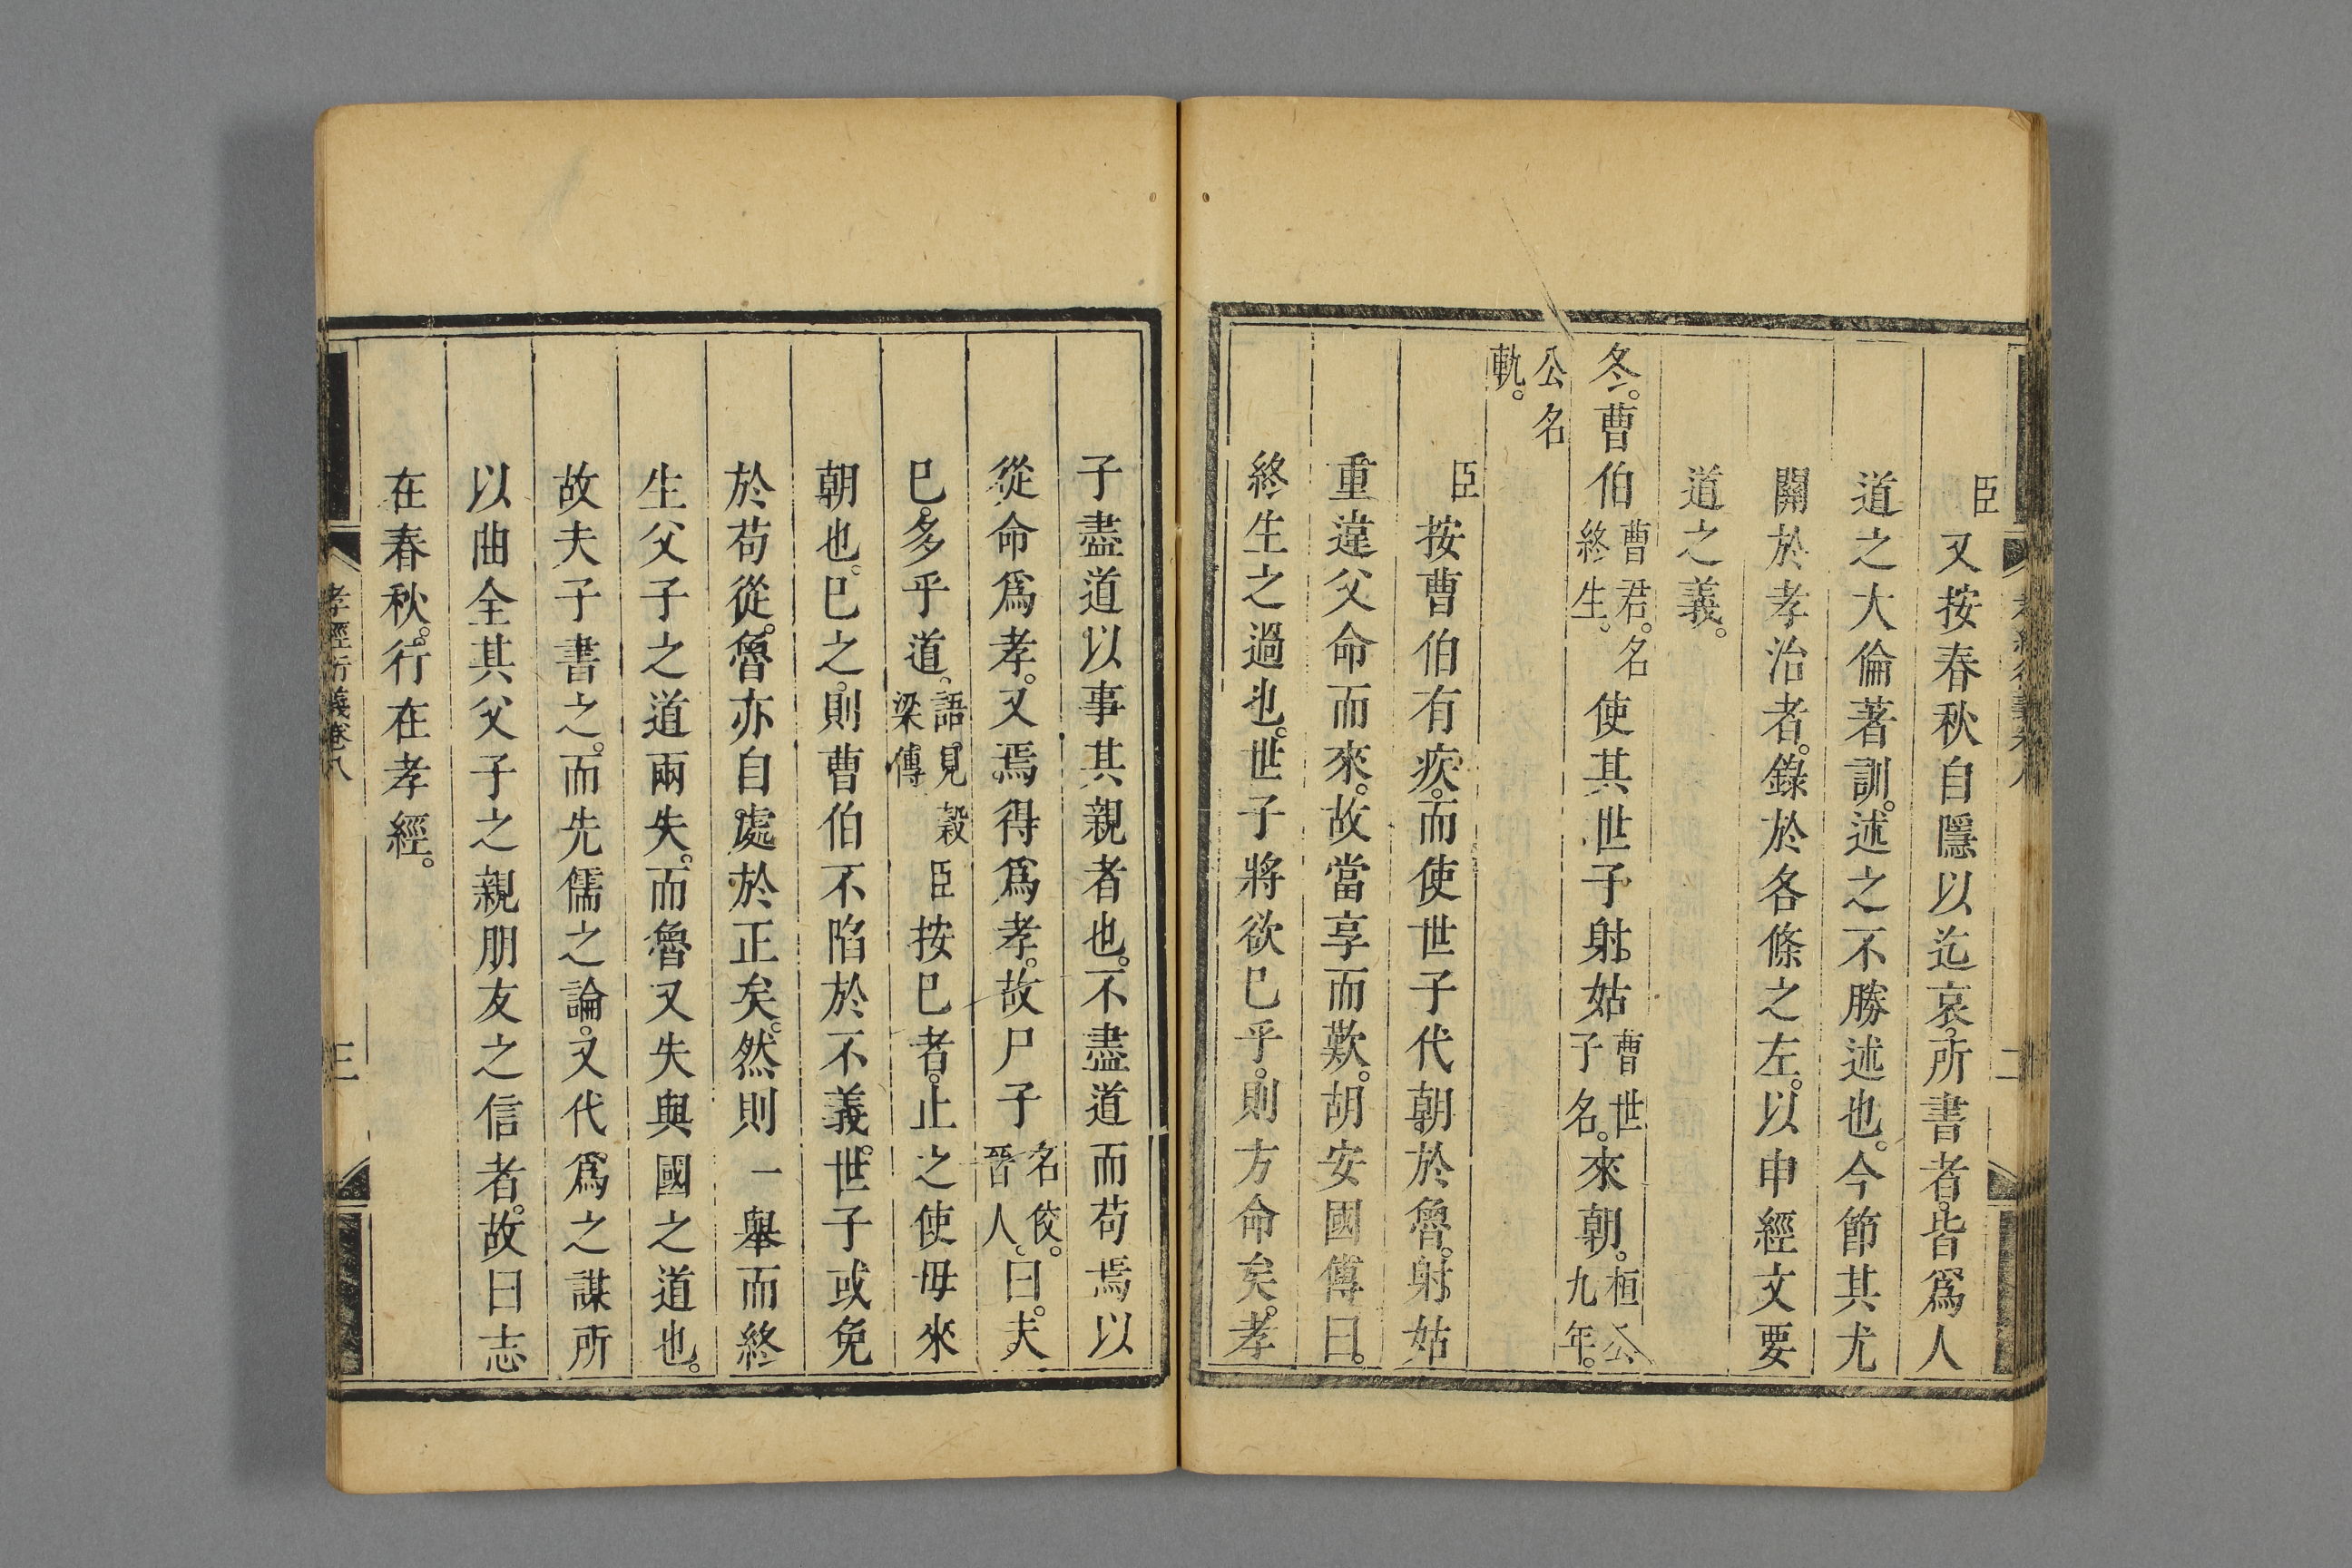 臣又按春秋自隱以迄哀。所書者。皆爲人
道之大倫著訓。述之不勝述也。今節其尤
關於孝治者。錄於各條之左。以申經文要
道之義。
冬。曹伯曹君。名終生。使其世子射姑曹世子名。來朝。桓公九年。
公名軌。
臣按曹伯有疾。而使世子代朝於魯。射姑
重違父命而來。故當享而歎。胡安國傳曰。
終生之過也。世子將欲已乎。則方命矣。孝
子盡道以事其親者也。不盡道而苟焉以
從命爲孝。又焉得爲孝。故尸子名佼。晉人。曰。夫
已。多乎道。語見穀梁傳臣按已者。止之使毋來
朝也。已之。則曹伯不陷於不義。世子或免
於苟從。魯亦自處於正矣。然則一舉而終
生父子之道兩失。而魯又失與國之道也。
故夫子書之。而先儒之論。又代爲之謀所
以曲全其父子之親朋友之信者。故曰志
在春秋。行在孝經。
孝經衍義卷八
三